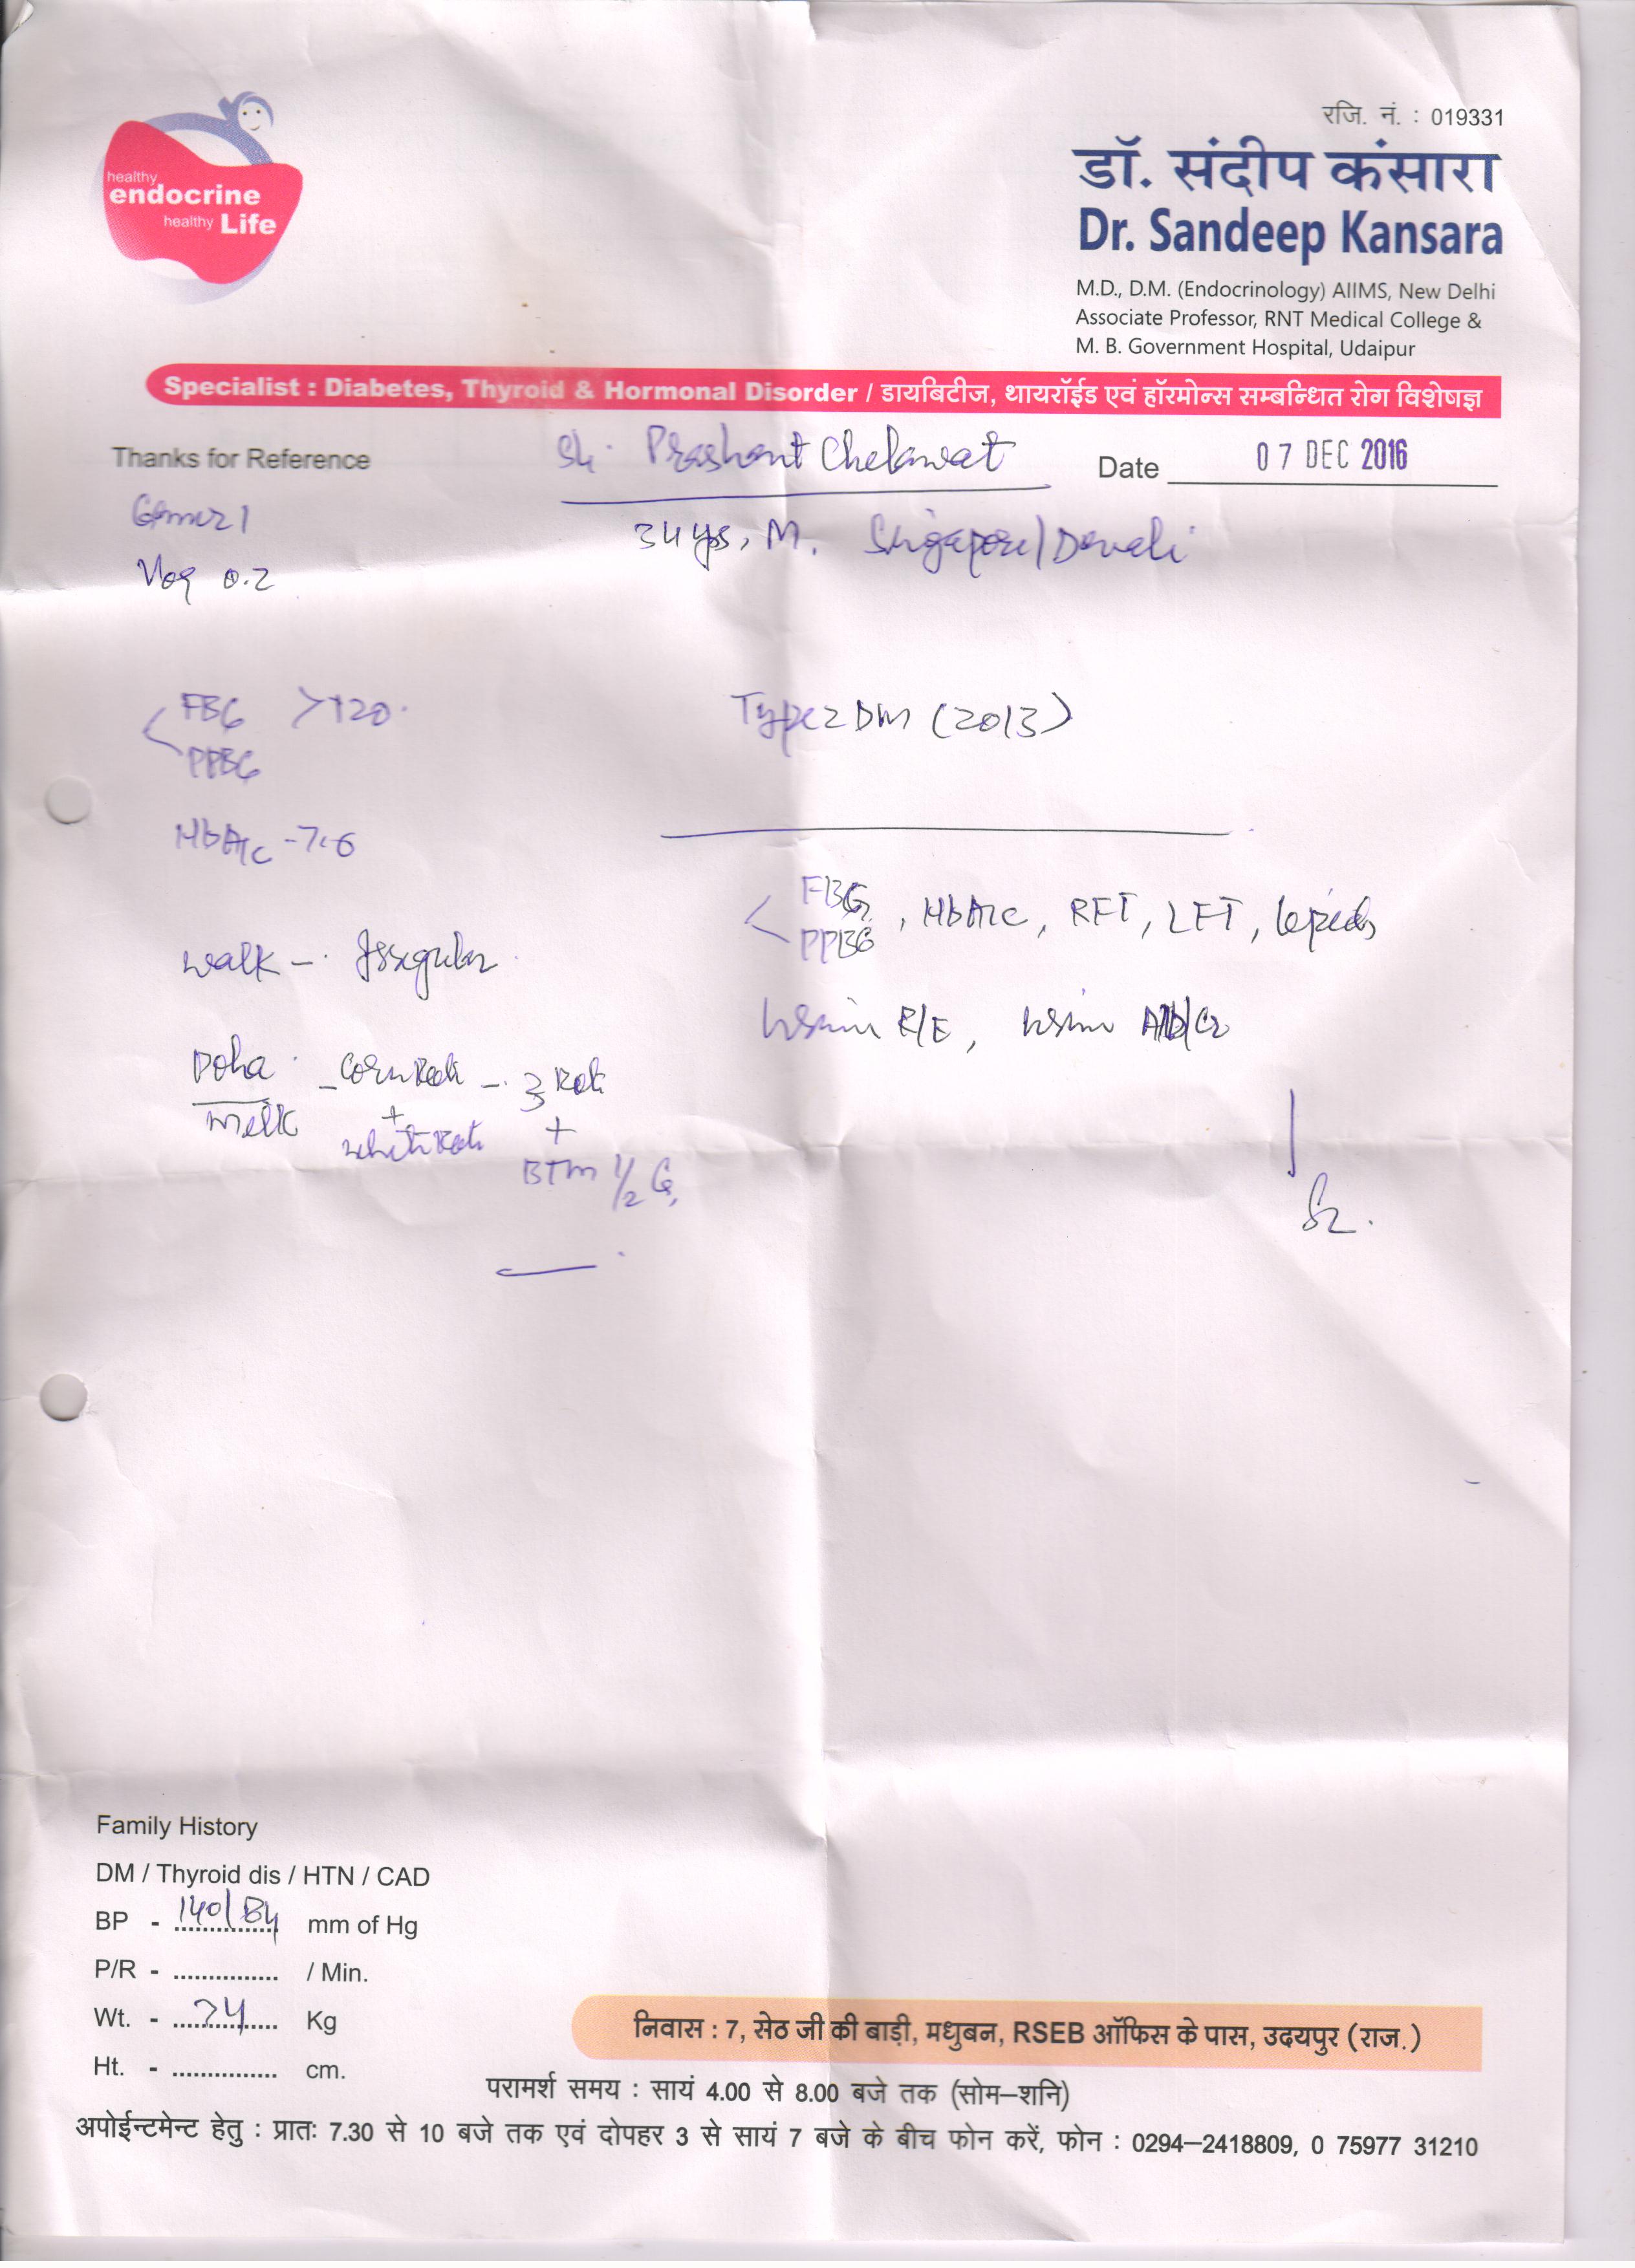 healthy
endocrine
healthy Life
रजि. नं. : 019331
डॉ. संदीप कंसारा
Dr. Sandeep Kansara
M.D., D.M. (Endocrinology) AIIMS, New Delhi
Associate Professor, RNT Medical College &
M. B. Government Hospital, Udaipur
Specialist : Diabetes, Thyroid & Hormonal Disorder / डायबिटीज, थायरॉईड एवं हॉरमोन्स सम्बन्धित रोग विशेषज्ञ
Thanks for Reference
Sh. Prashant Chelawat
Date 07 DEC 2016
34 yrs, M. Singapore/
Gemer 1
Vog 0.2
FBG >120.
PPBG
Type 2 DM (2013)
HbA1c - 7.6
FBG
PPBG , HbA1c, RFT, LFT, lipids
walk - Irregular
Urine R/E, Urine Alb/Cr
Poha - Corn Roti - 3 Roti
milk + +
white Roti
BTM 1/2 G
Family History
DM / Thyroid dis / HTN / CAD
BP - 140/84 mm of Hg
P/R - ............... / Min.
Wt. - 74 Kg
Ht. - ............... cm.
निवास : 7, सेठ जी की बाड़ी, मधुबन, RSEB ऑफिस के पास, उदयपुर (राज.)
परामर्श समय : सायं 4.00 से 8.00 बजे तक (सोम–शनि)
अपोईन्टमेन्ट हेतु : प्रातः 7.30 से 10 बजे तक एवं दोपहर 3 से सायं 7 बजे के बीच फोन करें, फोन : 0294–2418809, 0 75977 31210